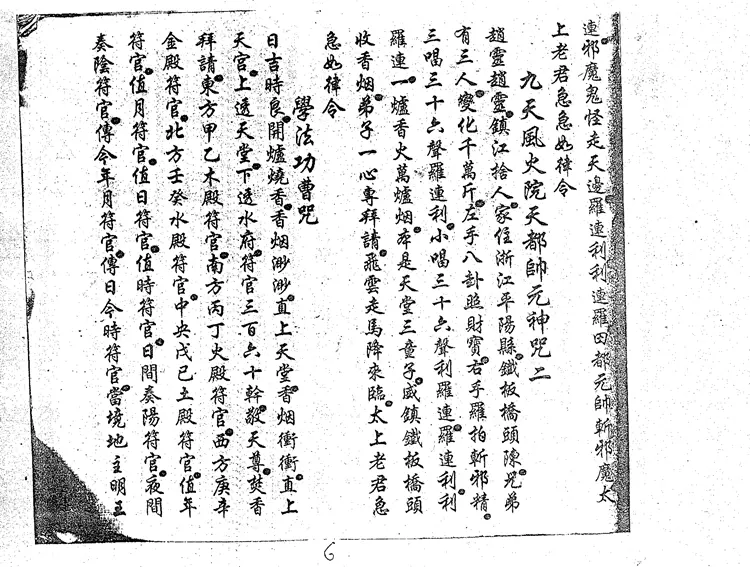 連邪魔鬼怪走天邊羅連利利連羅田都元帥斬邪魔太
上老君急急如律令
九天風火院天都帥元神咒二
趙靈趙靈鎮江捨人家住浙江平陽縣鐵板橋頭陳兄弟
有三人變化千萬斤左手八卦照財寶右手羅拍斬邪精
三唱三十六聲羅連利小唱三十六聲利羅連羅連利利
羅連一爐香火萬爐烟本是天堂三童子威鎮鐵板橋頭
收香烟弟子一心專拜請飛雲走馬降來臨太上老君急
急如律令
學法功曹咒
日吉時良開爐燒香香烟渺渺直上天堂香烟衝衝直上
天宮上透天堂下透水府符官三百六十幹敬天尊焚香
拜請東方甲乙木殿符官南方丙丁火殿符官西方庚辛
金殿符官北方壬癸水殿符官中央戊己土殿符官值年
符官值月符官值日符官值時符官日間奏陽符官夜間
奏陰符官傳令年月符官傳日令時符官當境地主明王
6